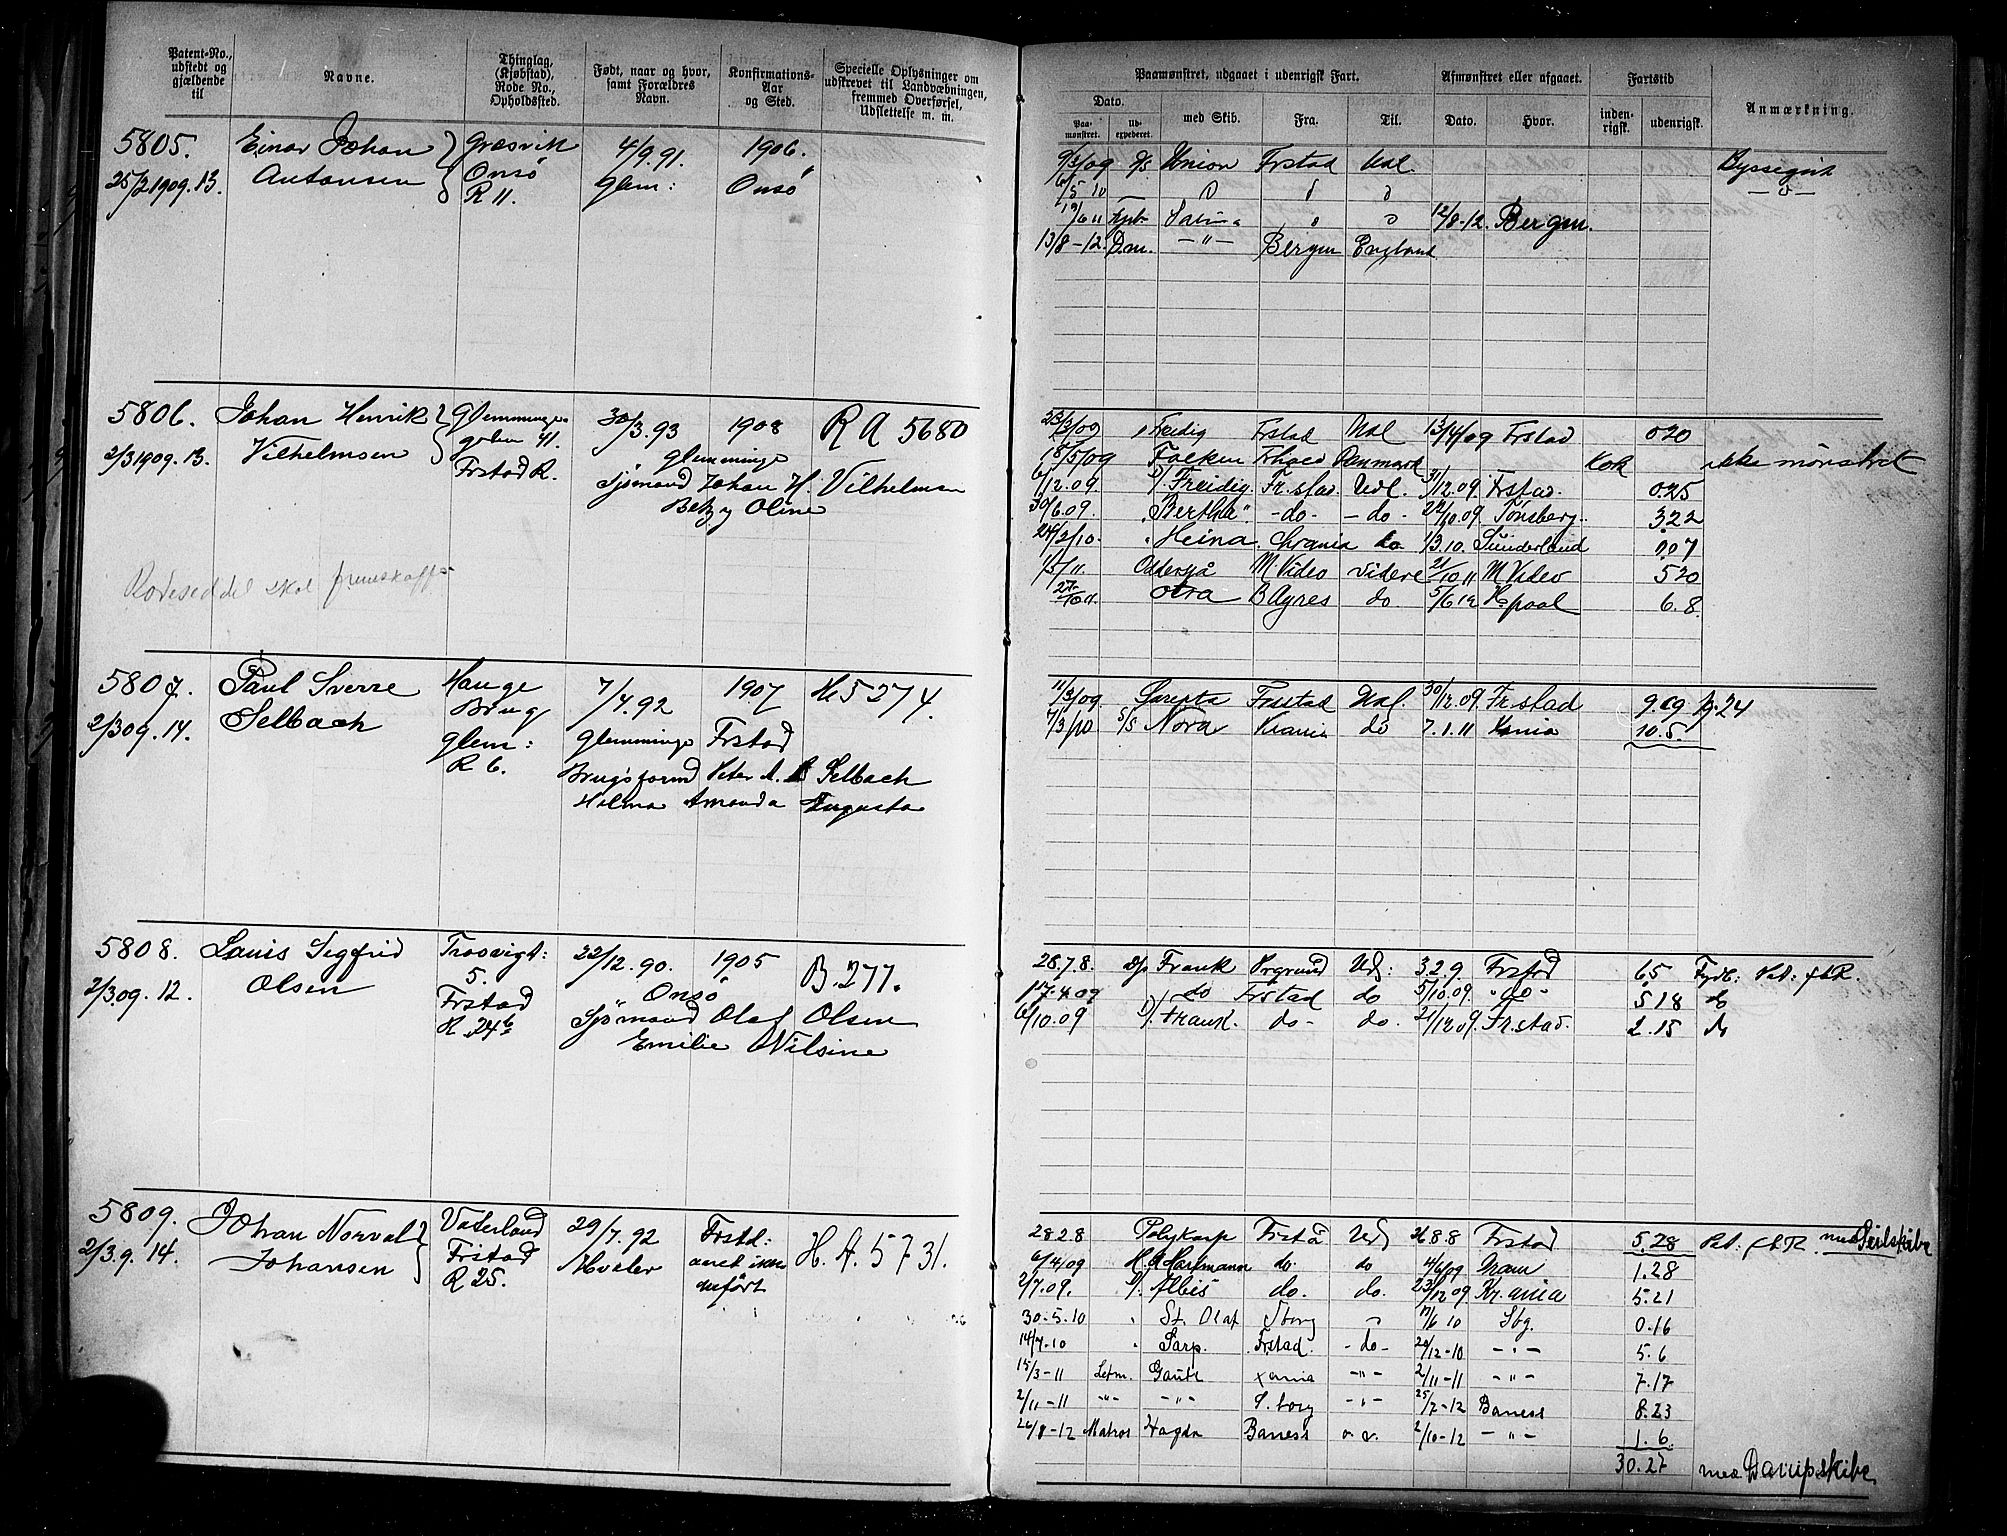 Patent-No., udstedt og gjældende til
Navne.
Thinglag, (Kjøbstad), Rode No., Opholdssted.
Født, naar og hvor, samt Forældres Navn.
Konfirmations-Aar og Sted.
Specielle Oplysninger om udskrevet til Landvæbningen, fremmed Overførsel, Udslettelse m. m.
Paamønstret, udgaaet i udenrigsk Fart.
Afmønstret eller afgaaet.
Fartstid
Anmærkning.
Dato.
Paa-mønstret.
Ud-expederet.
med Skib.
Fra.
Til.
Dato.
Hvor.
inden-rigsk.
udenrigsk.
5805. Einar Johan Græsvik 4/9.91. 1906.
25/2 1909. 13. Antonsen Onsö Glem: Onsö
R 11.
9/3/09 Union Frstad Udl. Byssegut
6/5 10
19/6 11 12/8-12. Bergen.
13/8-12. D.m. -"- Bergen England
5806. Johan Henrik Glemminge- 30/3.93 1908 R A 5680
2/3 1909. 13. Vilhelmsen 41. Glemminge
Frstad R. Sjømand Johan H. Vilhelmsen
Betzy Oline
Rodeseddel skal fremskaffes
23/3/09 Freidig Frstad Udl 13/4/09 Frstad 0 20
18/5/09 Falken Danmark Kok ikke mønstret
6/12.09. Freidig. Fr.stad. Udl. 31/12.09. Frstad. 0.25
30/6.09. "Bertha". -do- -do- 22/10.09. Tönsberg. 3.22
24/2/10. Heina. Chrania do 1/3.10. Sunderland 0.07
1/5/11. Oddersjå M.Video videre 21/10 11 M Video 5 20
27/10 11. Otra B Ayres do. 5/6 12 H.pool 6.8
5807. Paul Sverre Hauge 7/4.92 1907 H 5274.
2/3 09. 14. Selbach Brug Glemminge Frstad
Glem: Brugsformd Peter A. Selbach
R 6. Holma Amanda Augusta
11/3/09 Sarepta Frstad Udl. 30/12.09 Fr.stad 9.19 p.24
7/3/10 S/S Nora Krania do 7.1.11 Kania 10.5.
5808. Lauis Segfrid Trosvigt: 22/12.90. 1905 B.277.
2/3 09. 12. Olsen 5. Onsö
Frstad Sjömand Olaf Olsen
R 24b Emilie Nilsine
28.7.8. D/s Frank Prgrund Ud: 3.2.9. Frstad 6.5 Fyrb: Pat: f.l.R.
17.4.09 do Frstad do 5/10.09. "do" 5.18 do
6/10.09 Frank. do- do. 21/12 09. Fr.stad. 2.15 do
5809. Johan Norval Vaterland 29/7.92 Frstd: H.A. 5731.
2/3.9. 14. Johansen Frstad Hvaler aaret ikke
R 25. anført
28 2.8 Polykarp Frstå Ud 8.8 Frstad 5.28 Pat: f.l.R. med Seilskibe
6/4 09 H.A Hartmann do. do 4/6/09 1.28
2/7.09. Albis do. do. 23/12 09 Kr.ania 5.21
30.5.10 St. Olaf 17/6 10 Sbg. 0.16
14/7-10 Sarp. Frstad. -do- 20/12-10 -"- 5.6
15/3-11 Letm. Gaute Xania -"- 2/11-11 -"- 7.17
2/11-11 -"- -"- S.borg -"- 25/7-12 Baness 8.23
26/8-12 Matros Hagda Baness 2/10-12 -"- 1.6
30.27 med Dampskibe